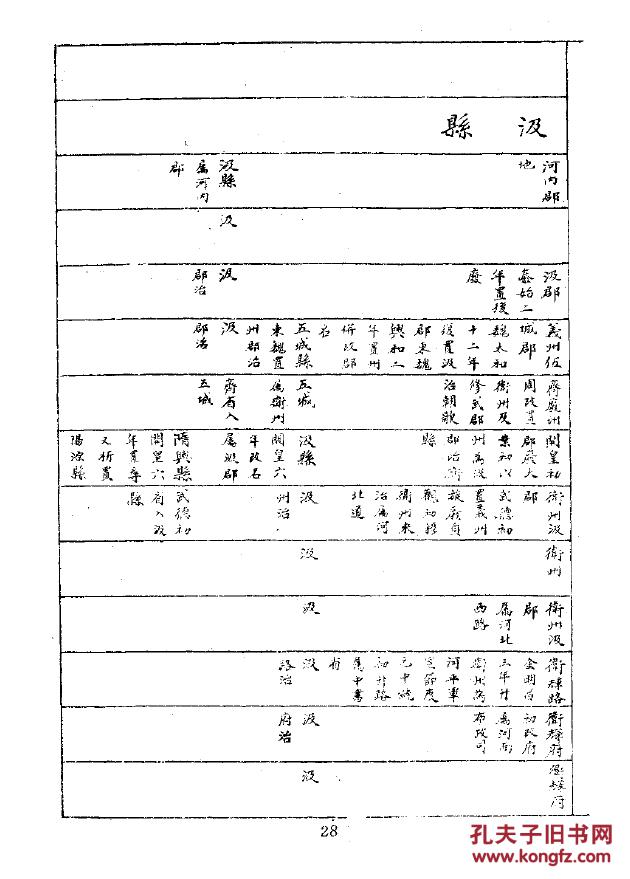 汲縣
河内郡
地
汲縣
屬河内
郡
汲
汲郡
泰始二
年置後
廢
汲
郡治
義州伍
城郡
魏太和
十二年
復置汲
郡東魏
興和二
年置州
併改郡
名
五城縣
東魏置
州郡治
汲
郡治
齊廢州
周改置
衛州及
修武郡
治朝歌
五城
爲衛州
齊省入
五城
開皇初
郡廢大
業初以
州爲汲
郡治衛
縣
汲縣
開皇六
年改名
屬汲郡
隋興縣
開皇六
年置尋
又析置
陽源縣
衛州汲
郡
武德初
置義州
旋廢貞
觀初移
衛州來
治屬河
北道
汲
州治
武德初
省入汲
縣
衛州
汲
衛州汲
郡
屬河北
西路
汲
衛輝路
金明昌
三年升
衛州爲
河平軍
節度
元中統
初升路
屬中書
省
汲
路治
衛輝府
初改府
爲河南
布政司
汲
府治
衛輝府
汲
28
孔夫子旧书网
www.kongfz.com